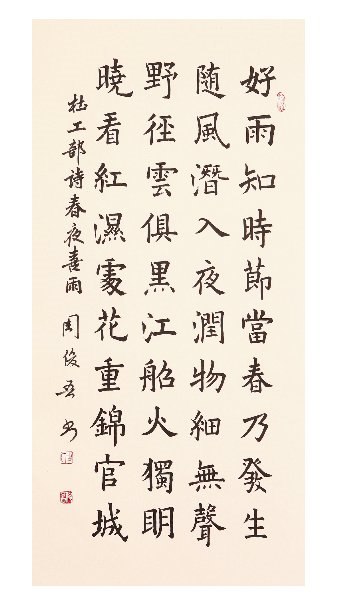 好雨知時節當春乃發生
随風潛入夜潤物細無聲
野径雲俱黑江船火獨明
曉看紅濕處花重錦官城
杜工部詩春夜喜雨 周俊吾书